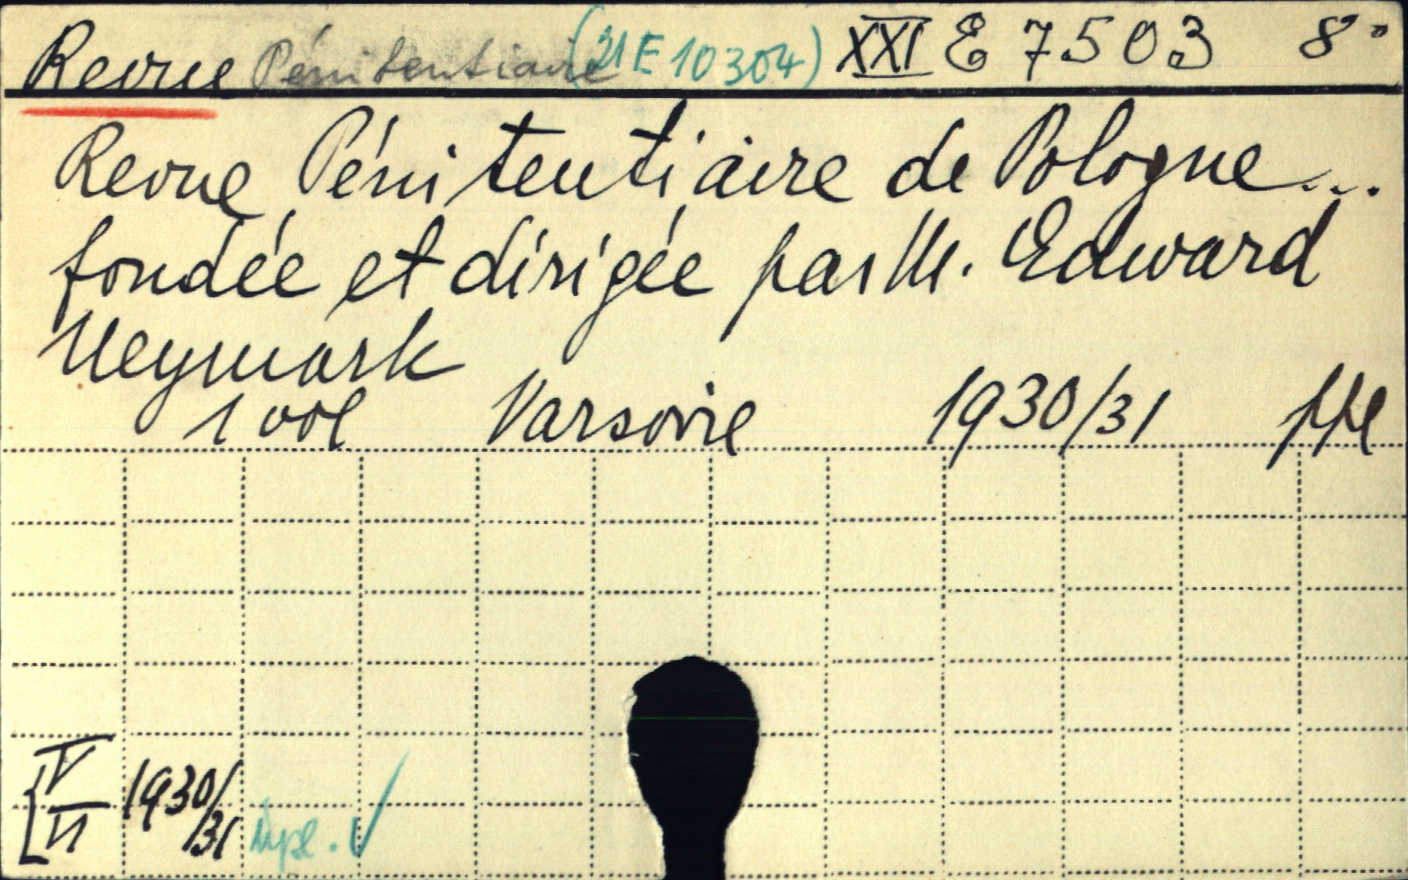 Revue Pénitentiaire (21 E 10304) XXI E 7503 8°
Revue Pénitentiaire de Pologne...
fondée et dirigée par M. Edward
Neymark
1 vol Varsovie 1930/31
V
VI 1930/31 dupl. V